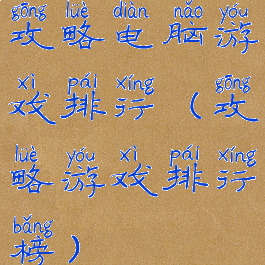 gōng lüè diàn nǎo yóu
攻略电脑游
xì pái xíng gōng
戏排行（攻
lüè yóu xì pái xíng
略游戏排行
bǎng
榜）